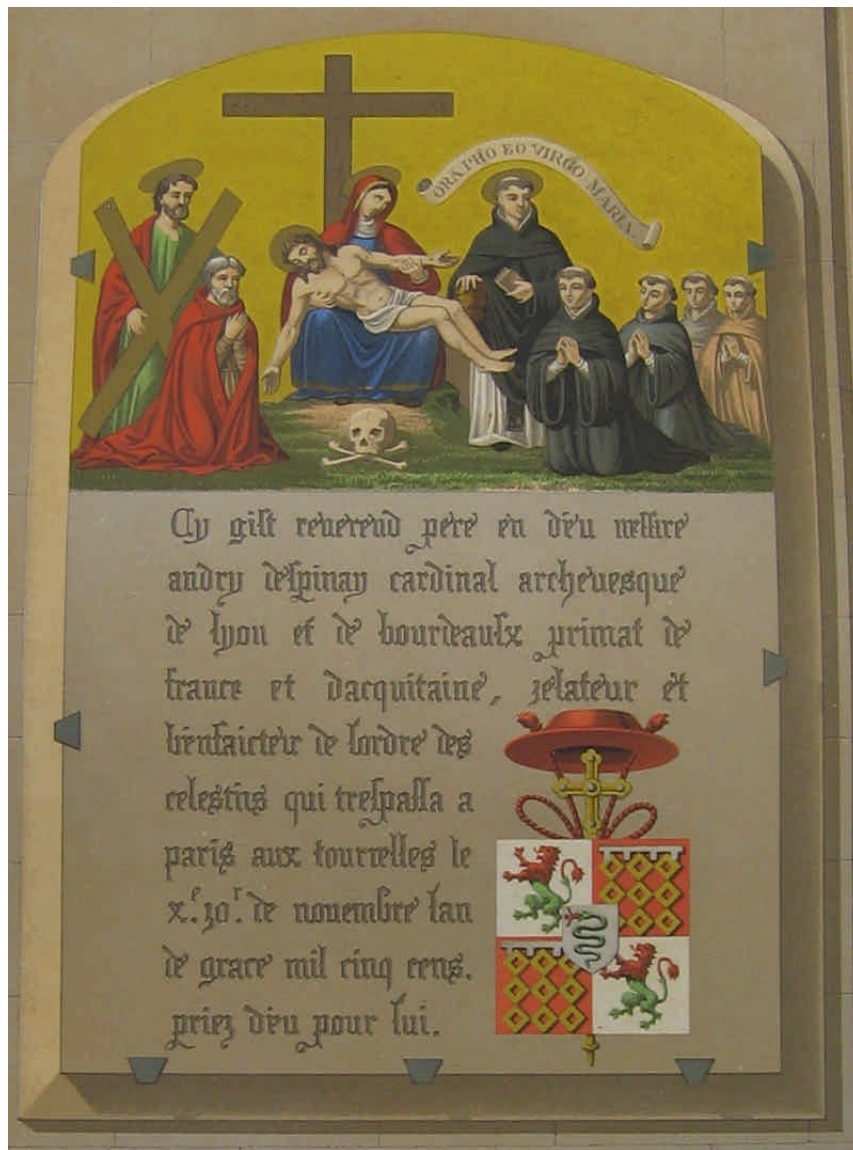 ORA PRO EO VIRGO MARIA.
Cy gist reuerend pere en dieu messire
andry despinay cardinal archeuesque
de lyon et de bourdeaulx primat de
france et dacquitaine, zelateur et
bienfaicteur de lordre des
celestins qui trespassa a
paris aux tournelles le
x.e jo.r de nouembre lan
de grace mil cinq cens.
priez dieu pour lui.